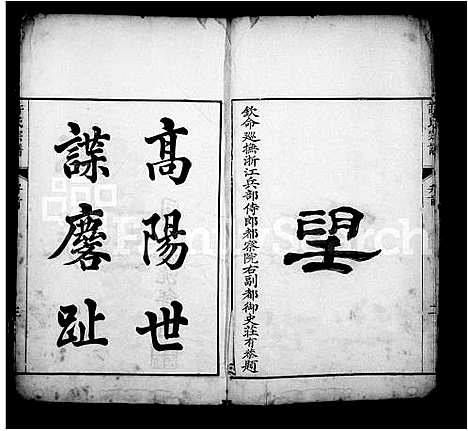 望
欽命巡撫浙江兵部侍郎都察院右副都御史莊有恭題
高陽世
諜麐趾
FamilySearch